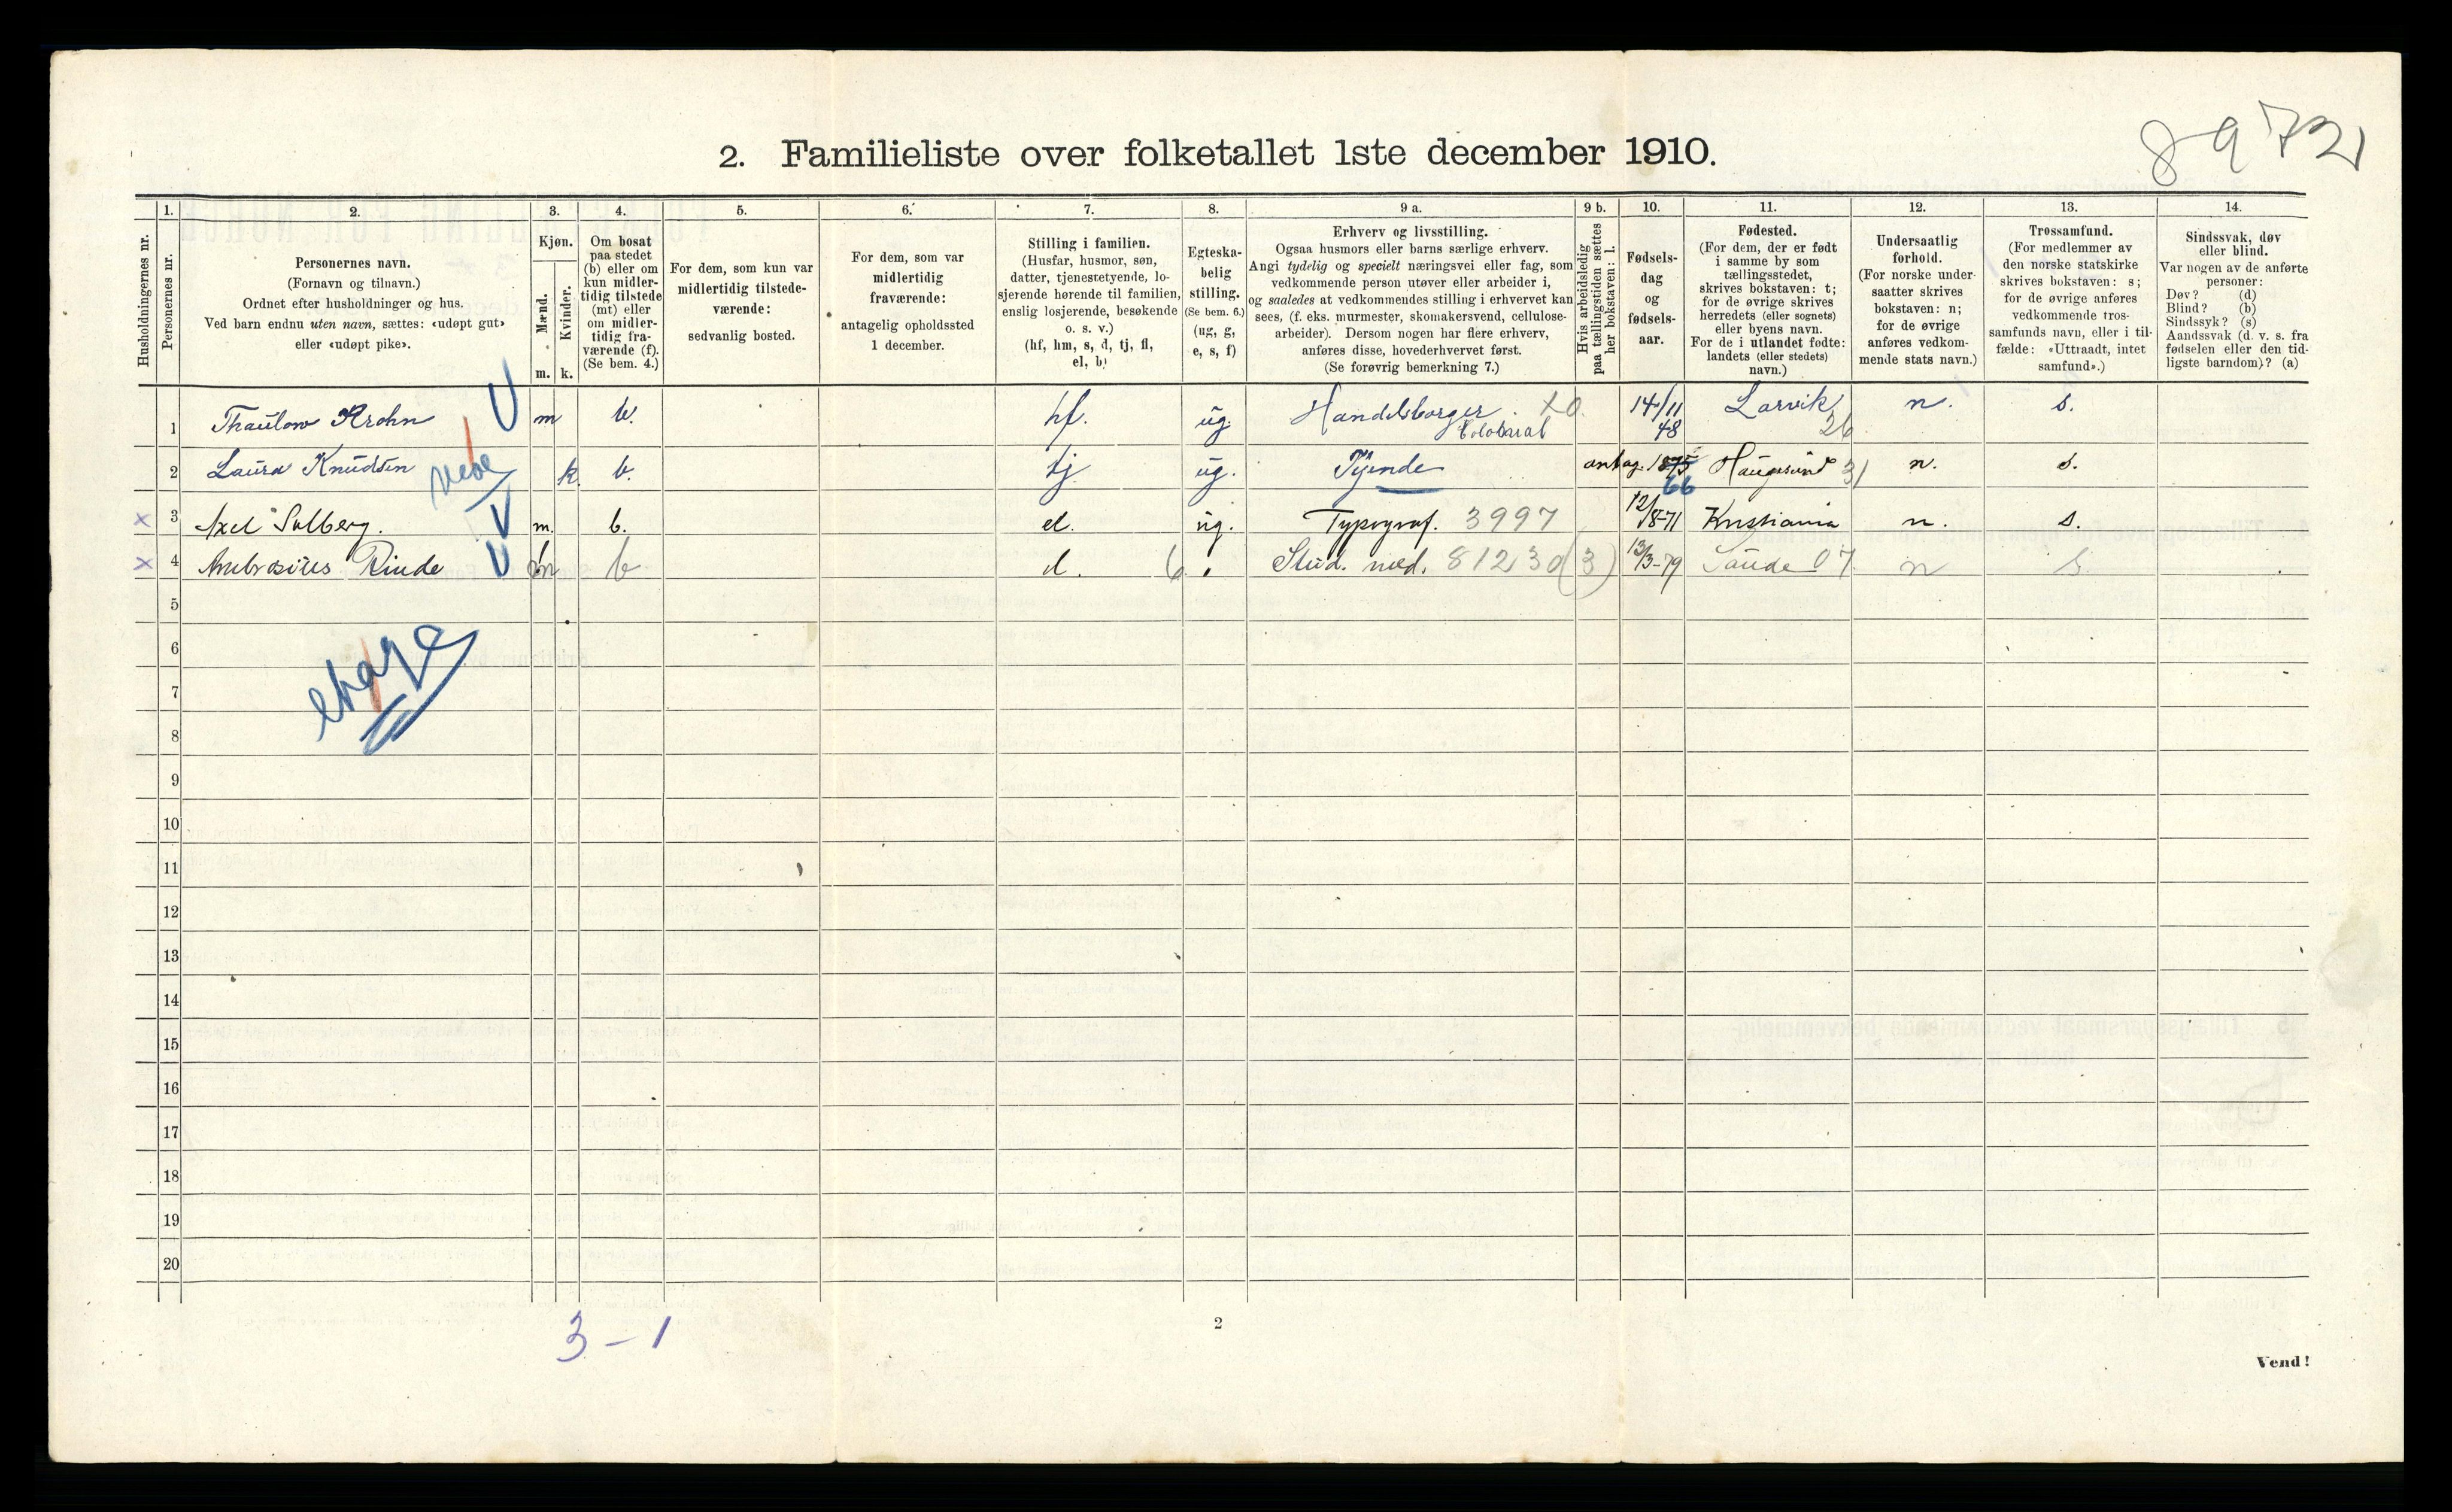 8972
2. Familieliste over folketallet 1ste december 1910.
Husholdningernes nr.
1.
Personernes nr.
2.
Personernes navn.
(Fornavn og tilnavn.)
Ordnet efter husholdninger og hus.
Ved barn endnu uten navn, sættes: «udøpt gut»
eller «udøpt pike».
3.
Kjøn.
Mænd.
Kvinder.
m. k.
4.
Om bosat
paa stedet
(b) eller om
kun midler-
tidig tilstede
(mt) eller
om midler-
tidig fra-
værende (f).
(Se bem. 4.)
5.
For dem, som kun var
midlertidig tilstede-
værende:
sedvanlig bosted.
6.
For dem, som var
midlertidig
fraværende:
antagelig opholdssted
1 december.
7.
Stilling i familien.
(Husfar, husmor, søn,
datter, tjenestetyende, lo-
sjerende hørende til familien,
enslig losjerende, besøkende
o. s. v.)
(hf, hm, s, d, tj, fl,
el, b)
8.
Egteska-
belig
stilling.
(Se bem. 6.)
(ug, g,
e, s, f)
9 a.
Erhverv og livsstilling.
Ogsaa husmors eller barns særlige erhverv.
Angi tydelig og specielt næringsvei eller fag, som
vedkommende person utøver eller arbeider i,
og saaledes at vedkommendes stilling i erhvervet kan
sees, (f. eks. murmester, skomakersvend, cellulose-
arbeider). Dersom nogen har flere erhverv,
anføres disse, hovederhvervet først.
(Se forøvrig bemerkning 7.)
9 b.
Hvis arbeidsledig
paa tællingstiden sættes
her bokstaven: l.
10.
Fødsels-
dag
og
fødsels-
aar.
11.
Fødested.
(For dem, der er født
i samme by som
tællingsstedet,
skrives bokstaven: t;
for de øvrige skrives
herredets (eller sognets)
eller byens navn.
For de i utlandet fødte:
landets (eller stedets)
navn.)
12.
Undersaatlig
forhold.
(For norske under-
saatter skrives
bokstaven: n;
for de øvrige
anføres vedkom-
mende stats navn.)
13.
Trossamfund.
(For medlemmer av
den norske statskirke
skrives bokstaven: s;
for de øvrige anføres
vedkommende tros-
samfunds navn, eller i til-
fælde: «Uttraadt, intet
samfund».)
14.
Sindssvak, døv
eller blind.
Var nogen av de anførte
personer:
Døv? (d)
Blind? (b)
Sindssyk? (s)
Aandssvak (d. v. s. fra
fødselen eller den tid-
ligste barndom)? (a)
1 Thaulow Krohn m b. hf. ug. Handelsborger. 14/11 48 Larvik 26 n. s.
2 Laura Knudsen k. b. tj ug. Tjende antag. 1875 66 Haugesund 31 n. s.
x 3 Axel Solberg. m. b. el. ug. Typograf. 3997 12/8-71 Kristiania n. s.
x 4 Ambrosius Rinde m b el. Stud. med. 81230 (3) 13/3-79 Saude 07 n s.
5
6
7
8
9
10
11
12
13
14
15
16
17
18
19
20
3-1
2
Vend!